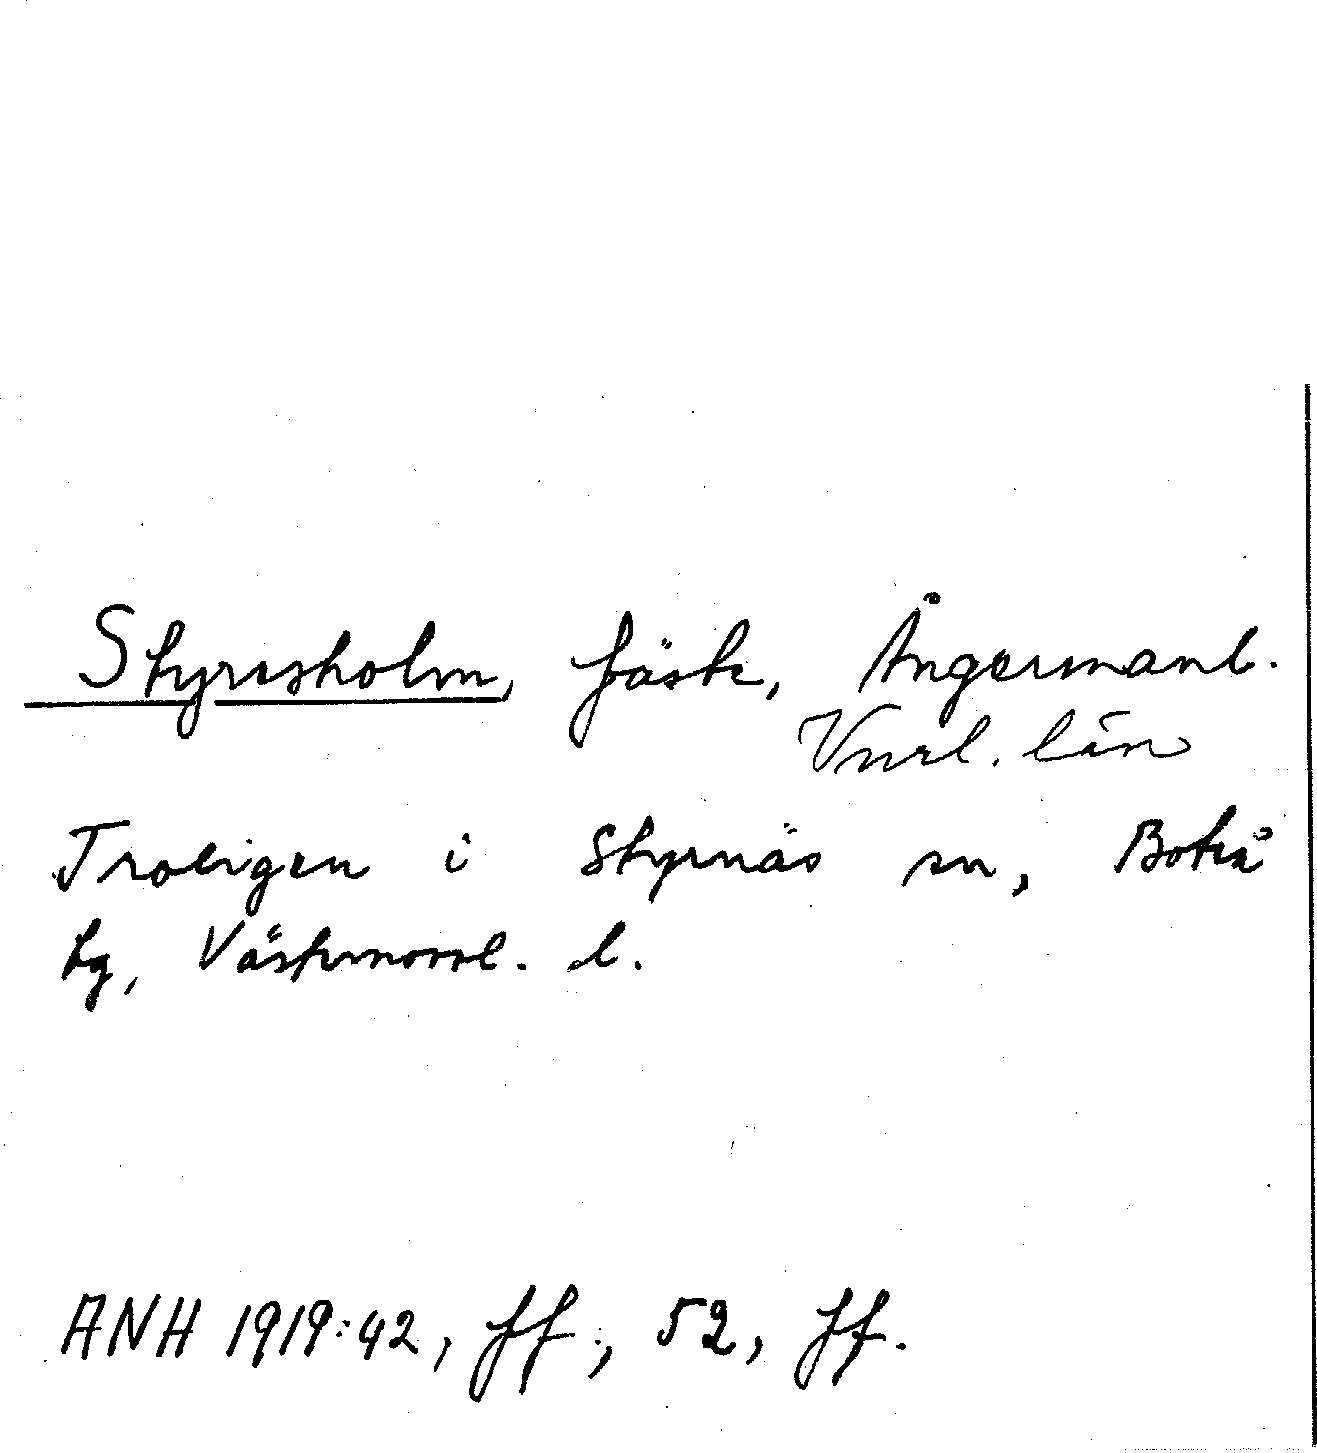 Styresholm, fäste, Ångermanl.
Vnrl. län
Troligen i Styrnäs sn, Boteå
tg, Västernorrl. l.
ANH 1919:42, ff., 52, ff.